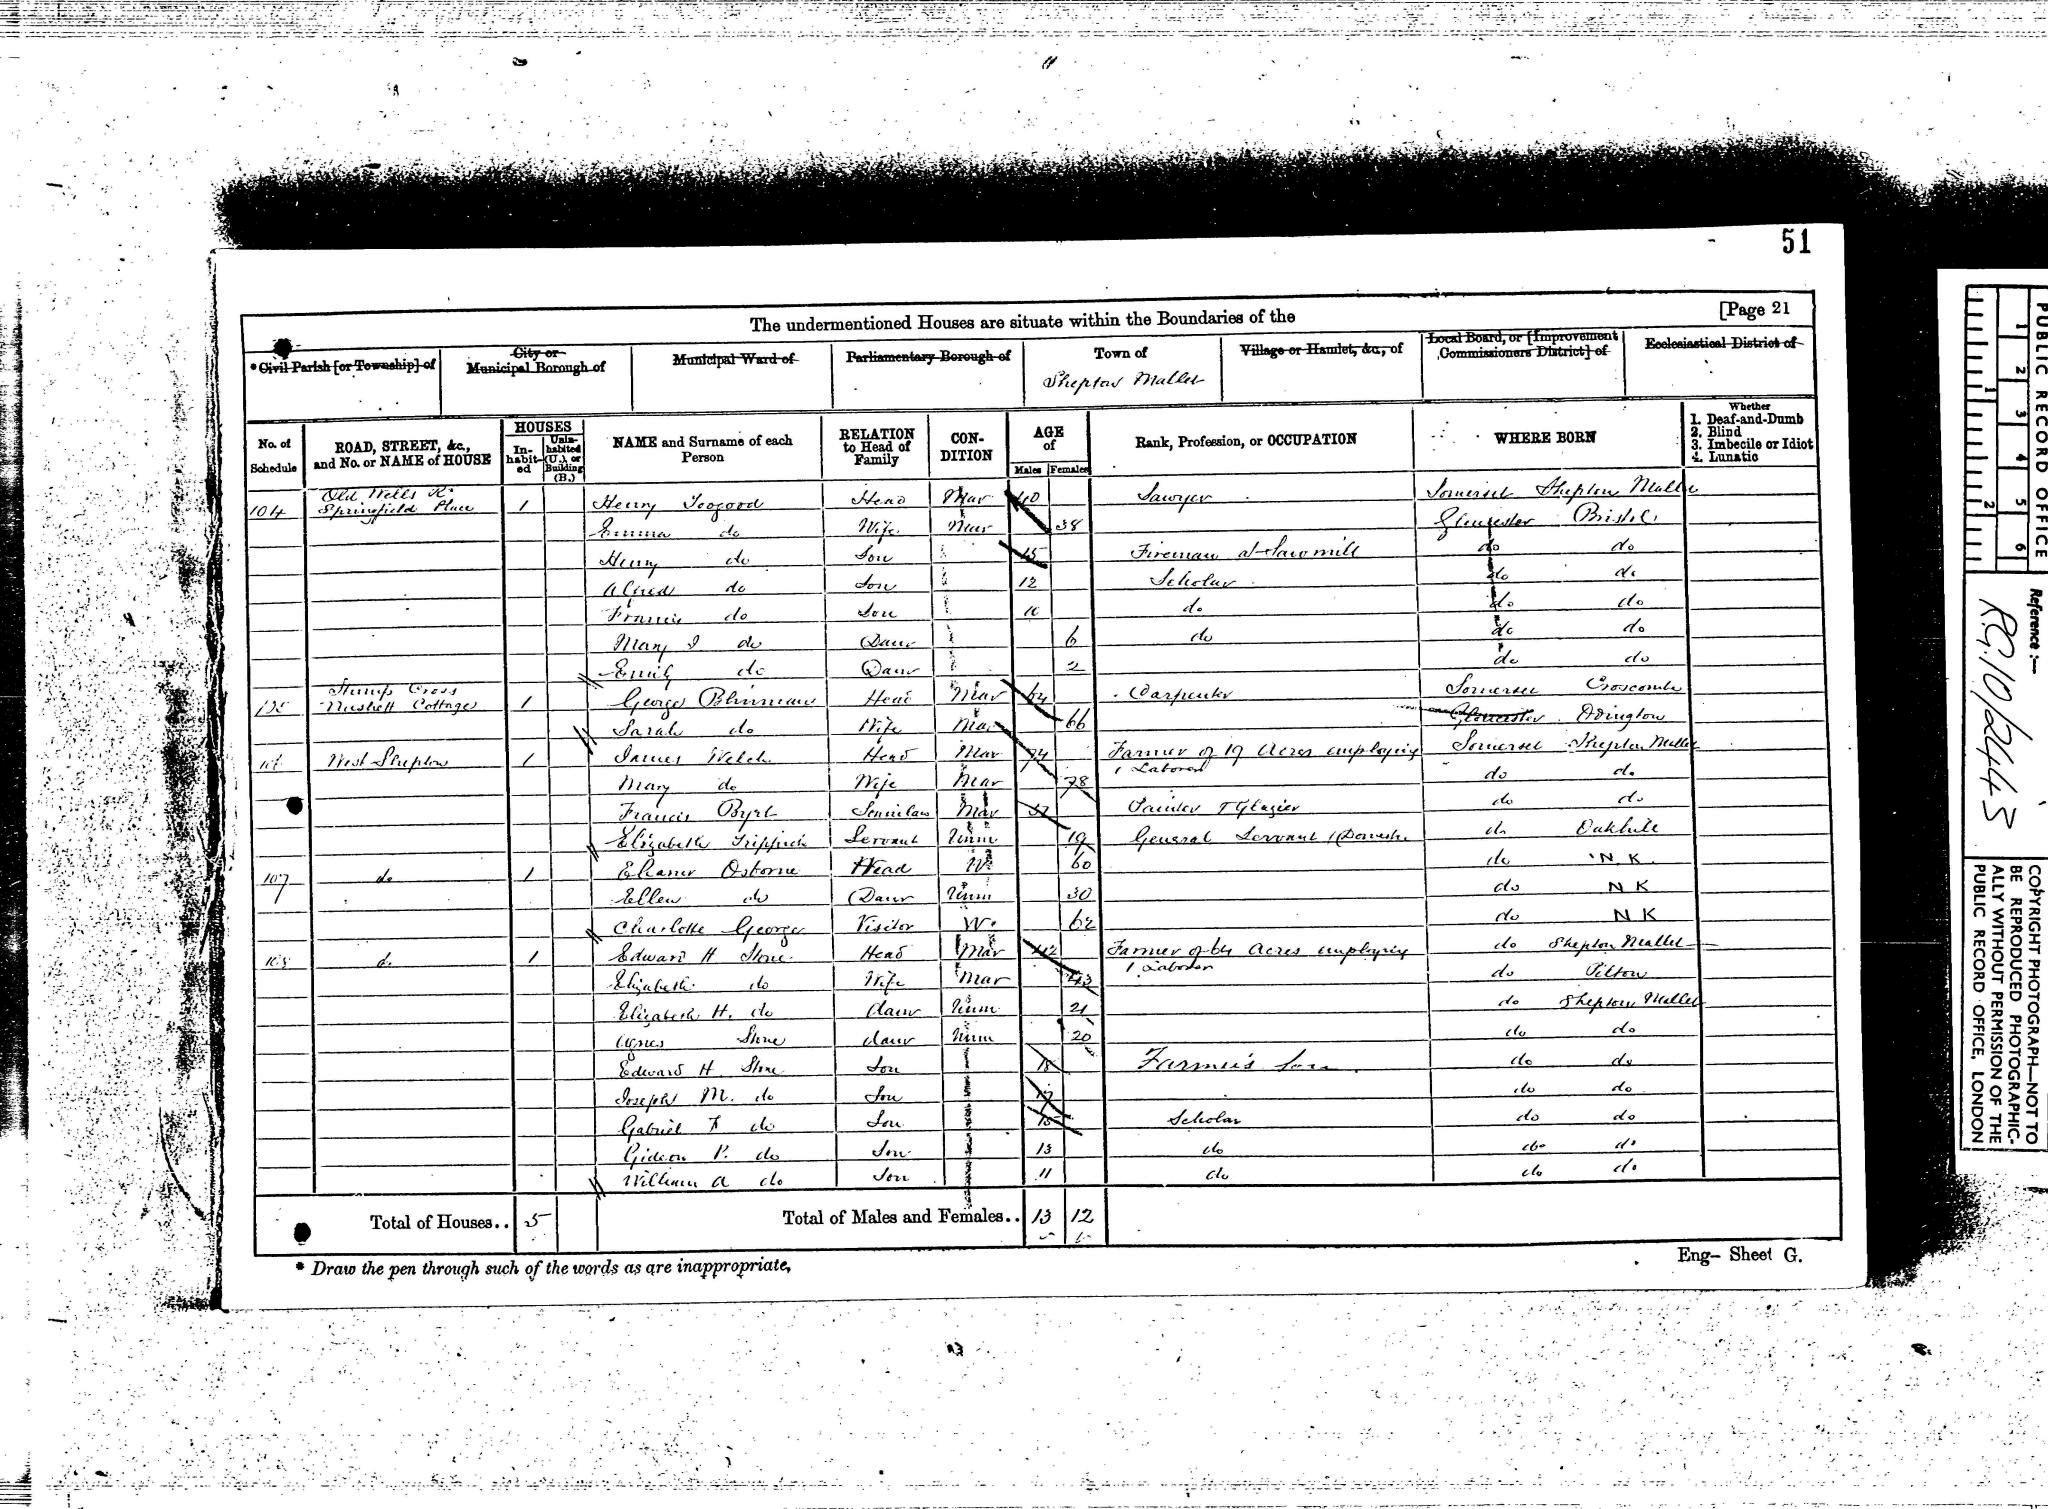 51
[Page 21
The undermentioned Houses are situate within the Boundaries of the
* Civil Parish [or Township] of
City or Municipal Borough of
Municipal Ward of
Parliamentary Borough of
Town of
Shepton Mallet
Village or Hamlet, &c., of
Local Board, or [Improvement Commissioners District] of
Ecclesiastical District of
No. of Schedule
ROAD, STREET, &c., and No. or NAME of HOUSE
HOUSES
In-habit-ed
Unin-habited (U.), or Building (B.)
NAME and Surname of each Person
RELATION to Head of Family
CON-DITION
AGE of
Males Females
Rank, Profession, or OCCUPATION
WHERE BORN
Whether
1. Deaf-and-Dumb
2. Blind
3. Imbecile or Idiot
4. Lunatic
104 Old Wells Rd Springfield Place 1 Henry Toogood Head Mar 40 Sawyer Somerset Shepton Mallet
Emma do Wife Mar 38 Gloucester Bristol
Henry do Son 15 Fireman at Sawmill do do
Alfred do Son 12 Scholar do do
Francis do Son 10 do do do
Mary J do Daur 6 do do do
Emily do Daur 2 do do
105 Stump Cross Cottage 1 George Blinman Head Mar 64 Carpenter Somerset Croscombe
Sarah do Wife Mar 66 Gloucester Odington
106 West Shepton 1 James Welch Head Mar 74 Farmer of 19 Acres employing 1 Laborer Somerset Shepton Mallet
Mary do Wife Mar 78 do do
Francis Byrt Soninlaw Mar 37 Painter & Glazier do do
Elizabeth Servant Unm 19 General Servant (Domestic do Oakhill
107 do 1 Eleanor Osborne Head W 60 do N K
Ellen do Daur Unm 30 do N K
Charlotte George Visitor W 62 do N K
108 do 1 Edward H Stone Head Mar 42 Farmer of 64 Acres employing 1 Laborer do Shepton Mallet
Elizabeth do Wife Mar 43 do Pilton
Elizabeth H. do daur Unm 21 do Shepton Mallet
Agnes Stone daur Unm 20 do do
Edward H. Stone Son 18 Farmer's Son do do
Joseph M. do Son 17 do do
Gabriel F do Son 15 Scholar do do
Gideon P. do Son 13 do do do
William A do Son 11 do do do
Total of Houses.. 5
Total of Males and Females.. 13 12
* Draw the pen through such of the words as are inappropriate,
Eng- Sheet G.
PUBLIC RECORD OFFICE
1 2 3 4 5 6
1 2
Reference :-
R.G. 10/2443
COPYRIGHT PHOTOGRAPH—NOT TO
BE REPRODUCED PHOTOGRAPHIC-
ALLY WITHOUT PERMISSION OF THE
PUBLIC RECORD OFFICE, LONDON